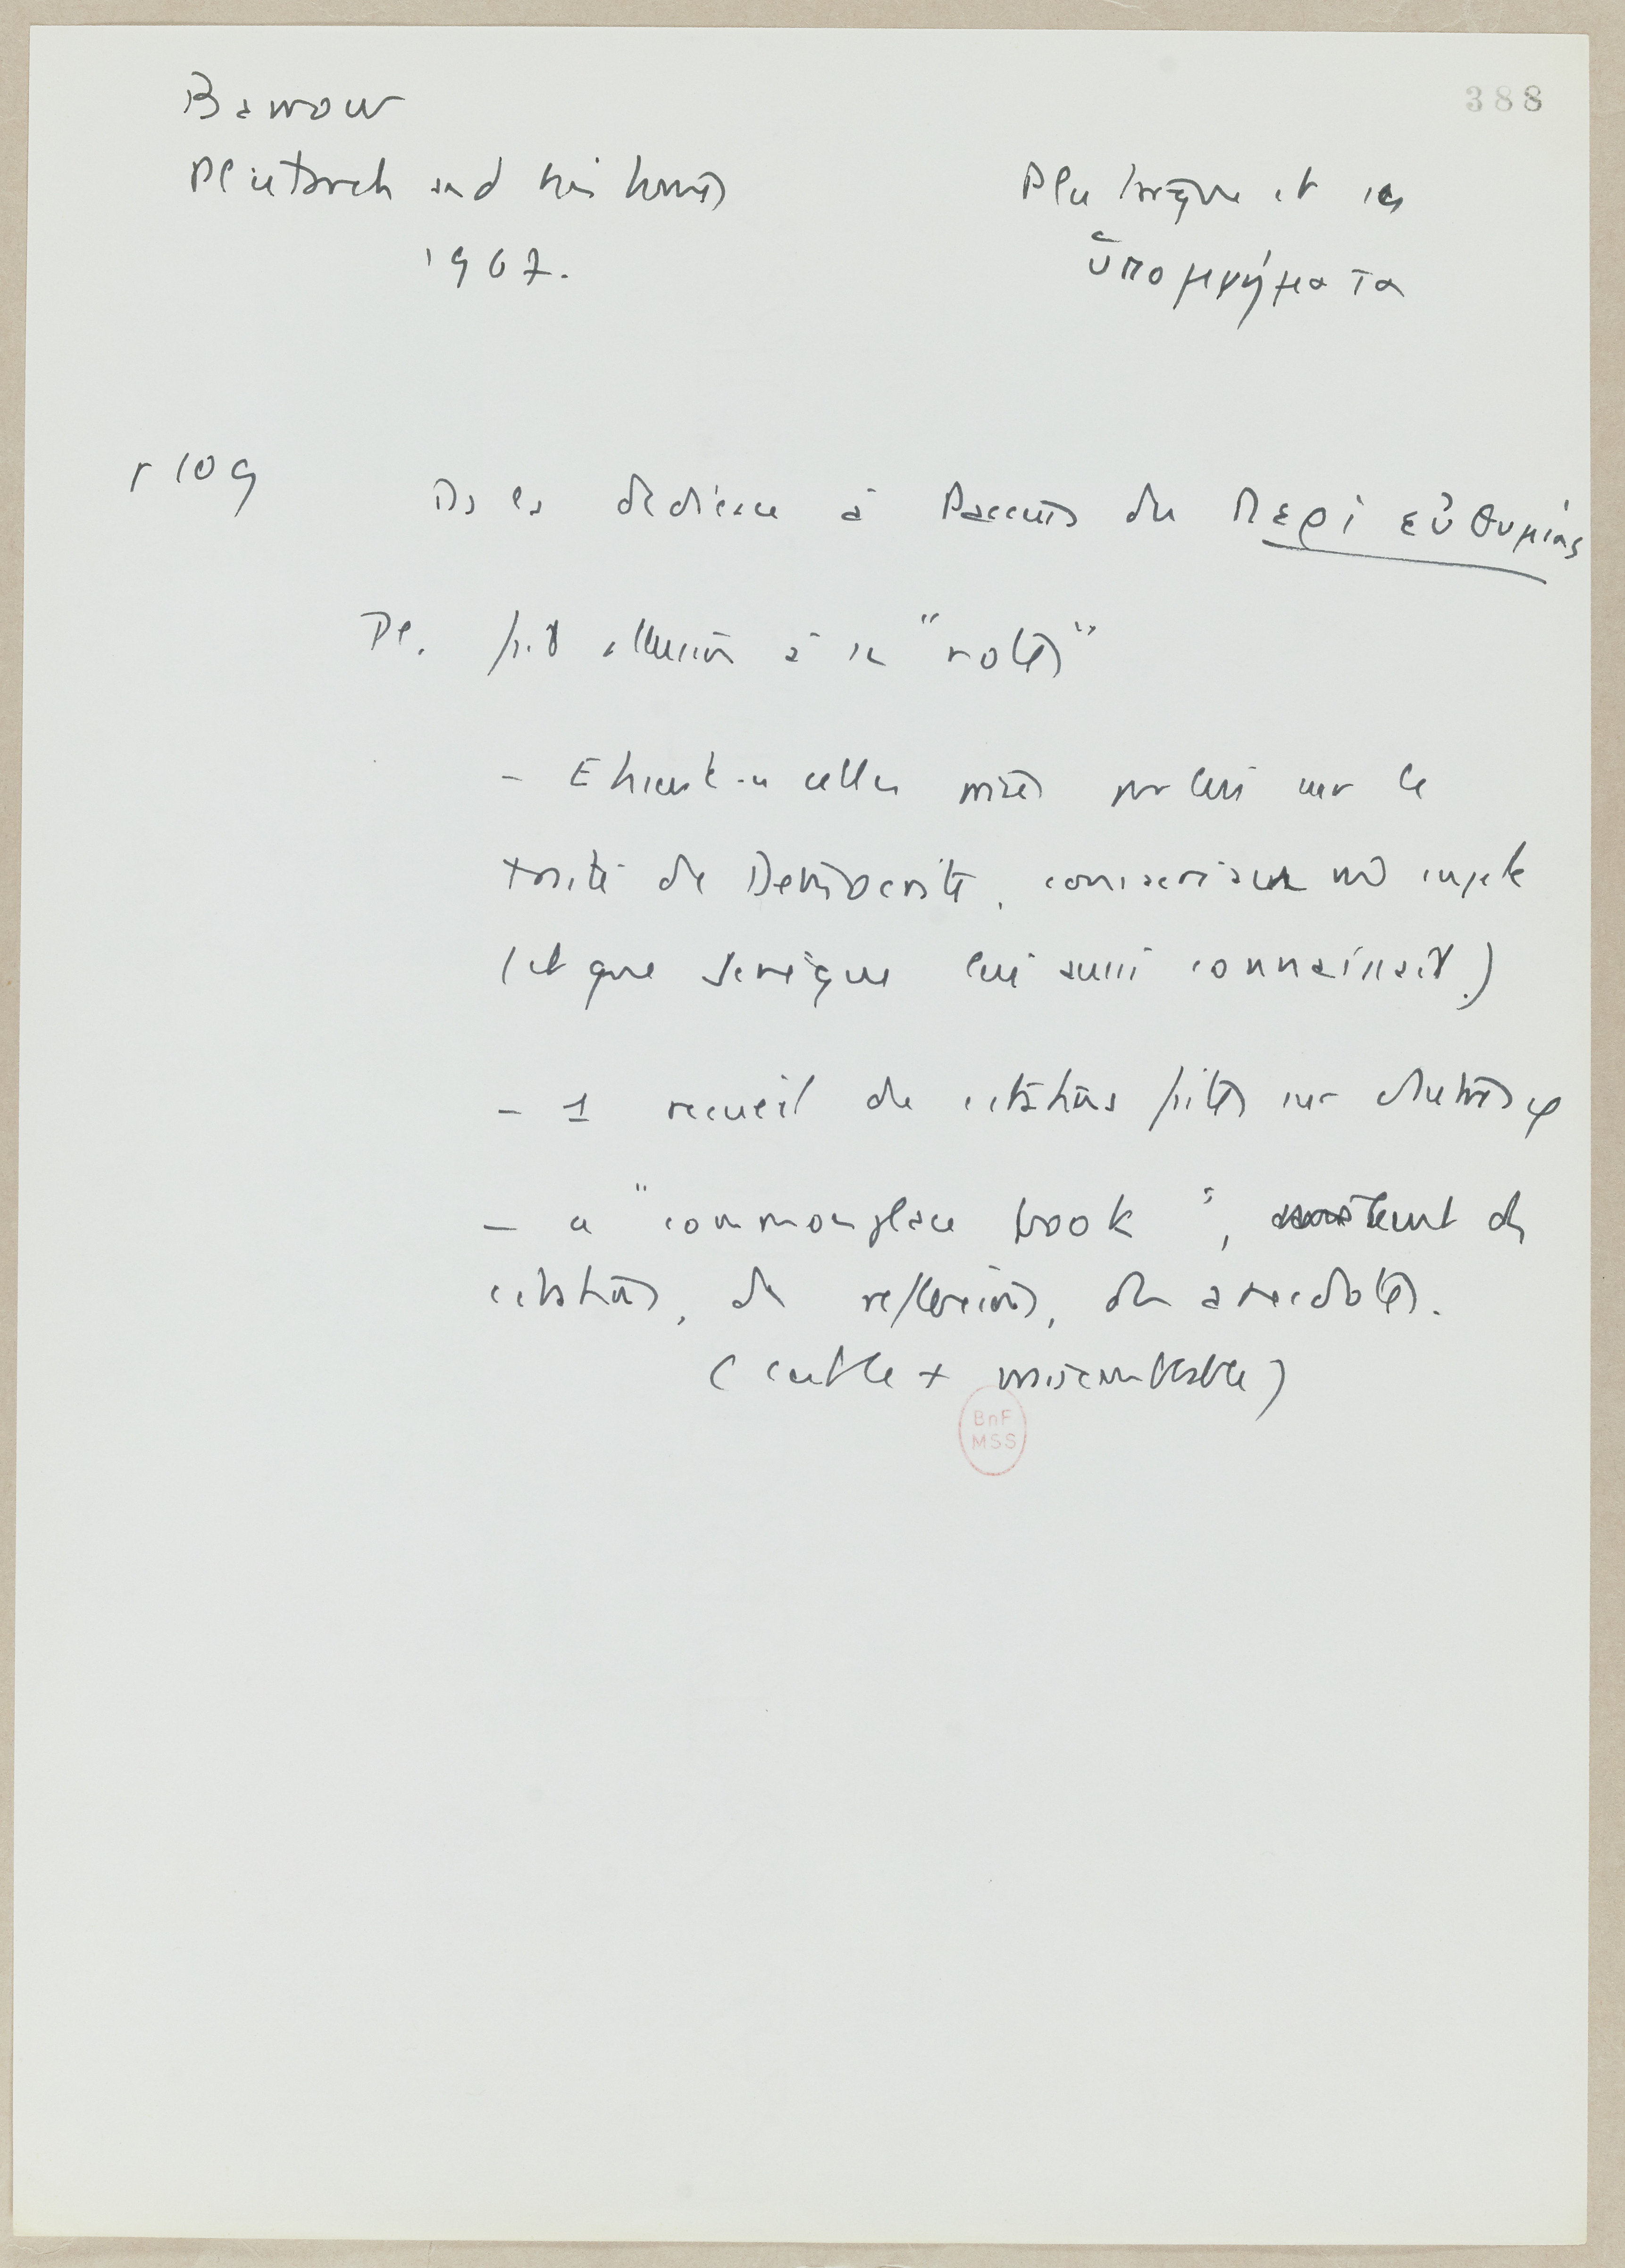 388
Barrow
Plutarch and his times
1967.
Plutarque et les
ὑπομνήματα
p 109
Ds la dédicace à Paccius du Περὶ εὐθυμίας
Pl. fait allusion à ses "notes"
- Etaient-ce celles prises par lui sur le
traité de Démocrite, consacré au sujet
(et que Sénèque lui aussi connaissait.)
- 1 recueil de citations faites sur
- a "commonplace book", de
citations, de réflexions, d'anecdotes.
(cette + vraisemblable)
BnF
MSS